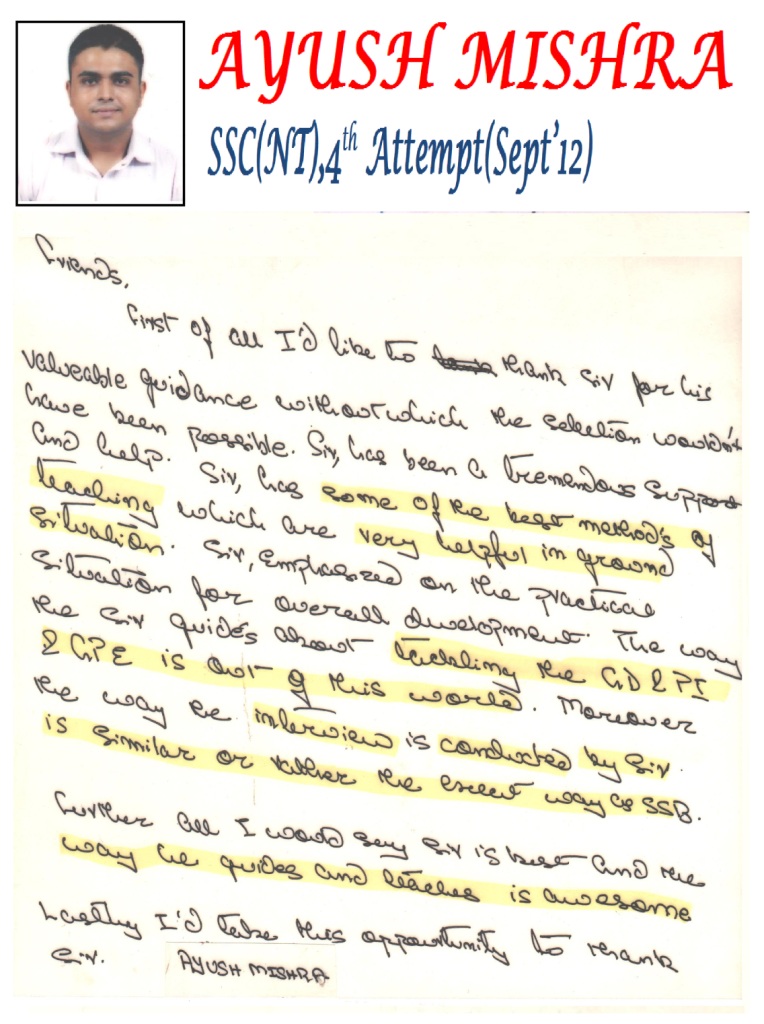 AYUSH MISHRA
SSC(NT),4th Attempt(Sept'12)
Friends,
First of all I'd like to thank Sir for his
valueable guidance without which the selection wouldn't
have been possible. Sir, has been a tremendous support
and help. Sir, has some of the best method's of
teaching which are very helpful in ground
situation. Sir, Emphasized on the practical
situation for overall development. The way
the Sir guides about tackling the GD & PI
& GPE is out of this world. Moreover
the way the interview is conducted by Sir.
is simmilar or rather the exact way as SSB.
Further all I would say Sir is best and the
way he guides and teaches is awesome
Lastly I'd take this opportunity to thank
Sir.
AYUSH MISHRA